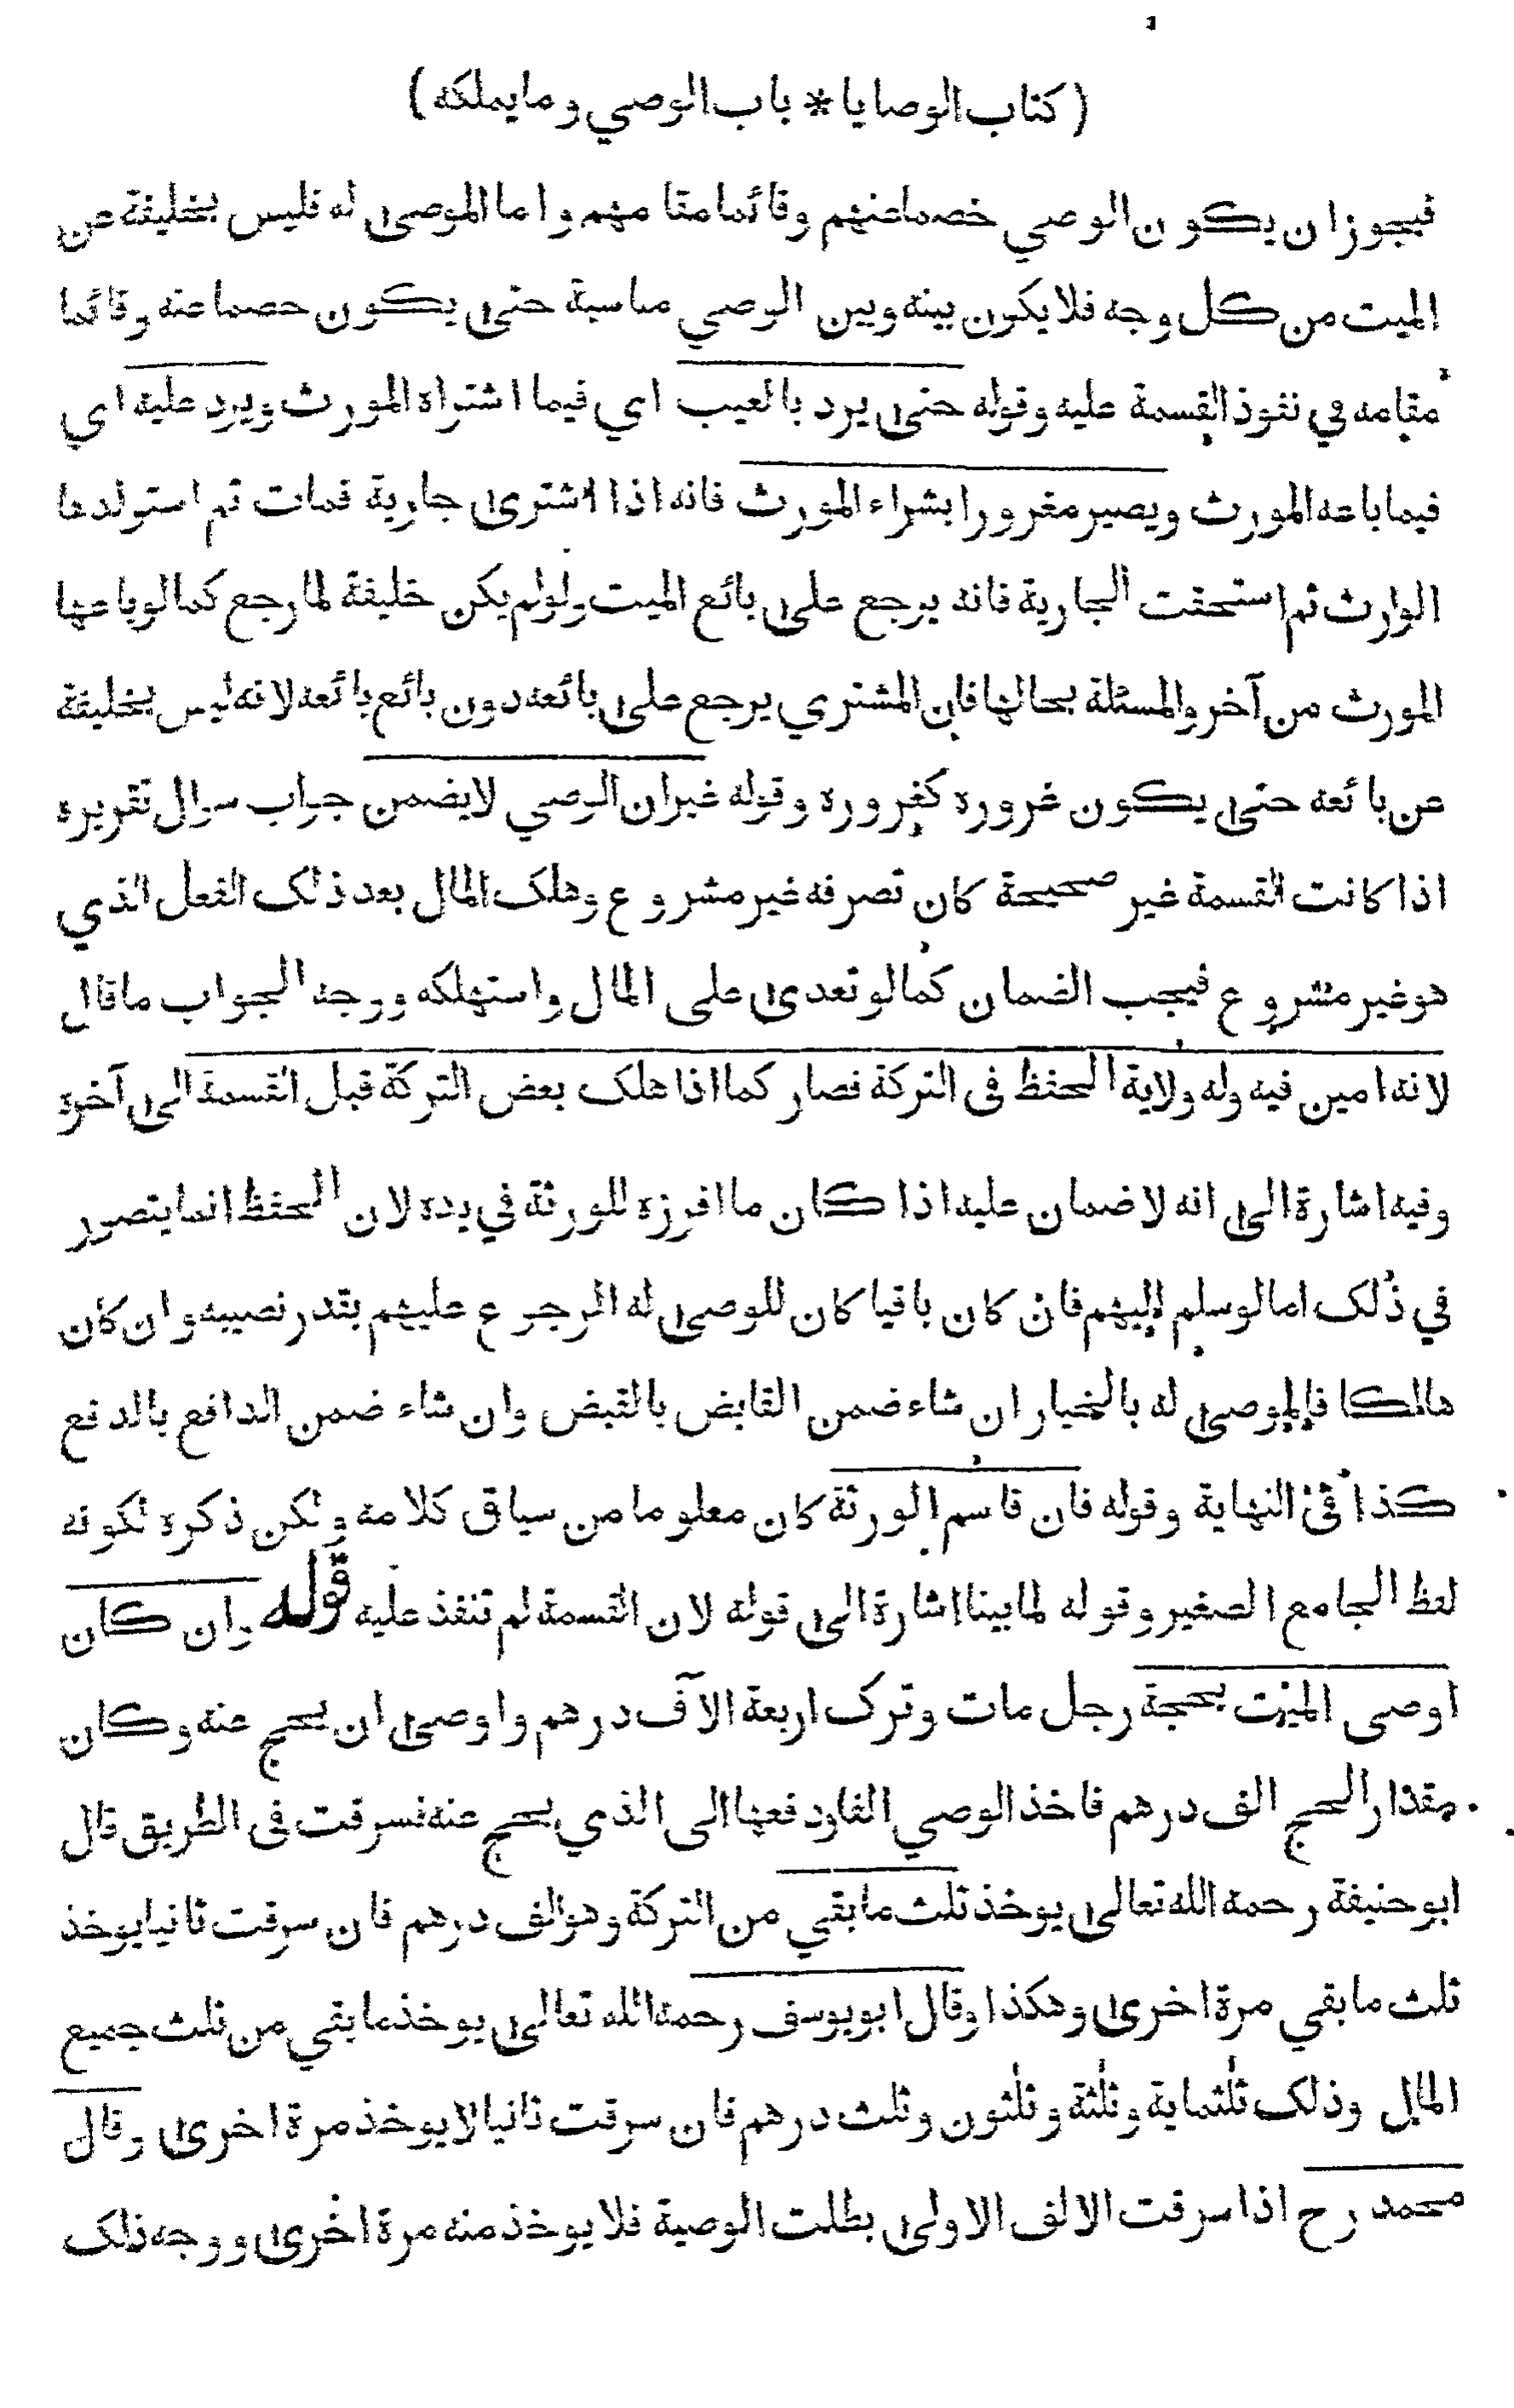 ( كتاب الوصايا * باب الوصي وما يملكه )
فيجوز ان يكون الوصي خصما عنهم وقائما مقامهم واما الموصىٰ له فليس بخليفة عن
الميت من كل وجه فلا يكون بينه وبين الوصي مناسبة حتىٰ يكون خصما عنه وقائما
مقامه في نفوذ القسمة عليه وقوله حتىٰ يرد بالعيب اي فيما اشتراه المورث ويرد عليه اي
فيما باعه المورث ويصير مغرورا بشراء المورث فانه اذا اشترىٰ جارية فمات ثم استولدها
الوارث ثم استحقت الجارية فانه يرجع علىٰ بائع الميت ولو لم يكن خليفة لما رجع كما لو باعها
المورث من آخر والمسئلة بحالها فان المشتري يرجع علىٰ بائعه دون بائع بائعه لانه ليس بخليفة
عن بائعه حتىٰ يكون غروره كغروره وقوله غير ان الوصي لا يضمن جواب سوال تقريره
اذا كانت القسمة غير صحيحة كان تصرفه غير مشروع وهلك المال بعد ذلك الفعل الذي
هو غير مشروع فيجب الضمان كما لو تعدىٰ على المال واستهلكه ووجه الجواب ما قال
لانه امين فيه وله ولاية الحفظ فى التركة فصار كما اذا هلك بعض التركة قبل القسمة الىٰ آخره
وفيه اشارة الىٰ انه لا ضمان عليه اذا كان ما افرزه للورثة في يده لان الحفظ انما يتصور
في ذلك اما لو سلم اليهم فان كان باقيا كان للوصىٰ له الرجوع عليهم بقدر نصيبه وان كان
هالكا فالموصىٰ له بالخيار ان شاء ضمن القابض بالقبض وان شاء ضمن الدافع بالدفع
كذا فى النهاية وقوله فان قاسم الورثة كان معلوما من سياق كلامه ولكن ذكره لكونه
لفظ الجامع الصغير وقوله لما بينا اشارة الىٰ قوله لان القسمة لم تنفذ عليه قوله وان كان
اوصى الميت بحجة رجل مات وترك اربعة الآف درهم واوصىٰ ان يحج عنه وكان
مقدار الحج الف درهم فاخذ الوصي الفا ودفعها الى الذي يحج عنه فسرقت فى الطريق قال
ابو حنيفة رحمه الله تعالىٰ يوخذ ثلث ما بقي من التركة وهو الف درهم فان سرقت ثانيا يوخذ
ثلث ما بقي مرة اخرىٰ وهكذا وقال ابو يوسف رحمه الله تعالىٰ يوخذ ما بقي من ثلث جميع
المال وذلك ثلثماية وثلثة وثلثون وثلث درهم فان سرقت ثانيا لا يوخذ مرة اخرىٰ وقال
محمد رح اذا سرقت الالف الاولىٰ بطلت الوصية فلا يوخذ منه مرة اخرىٰ ووجه ذلك